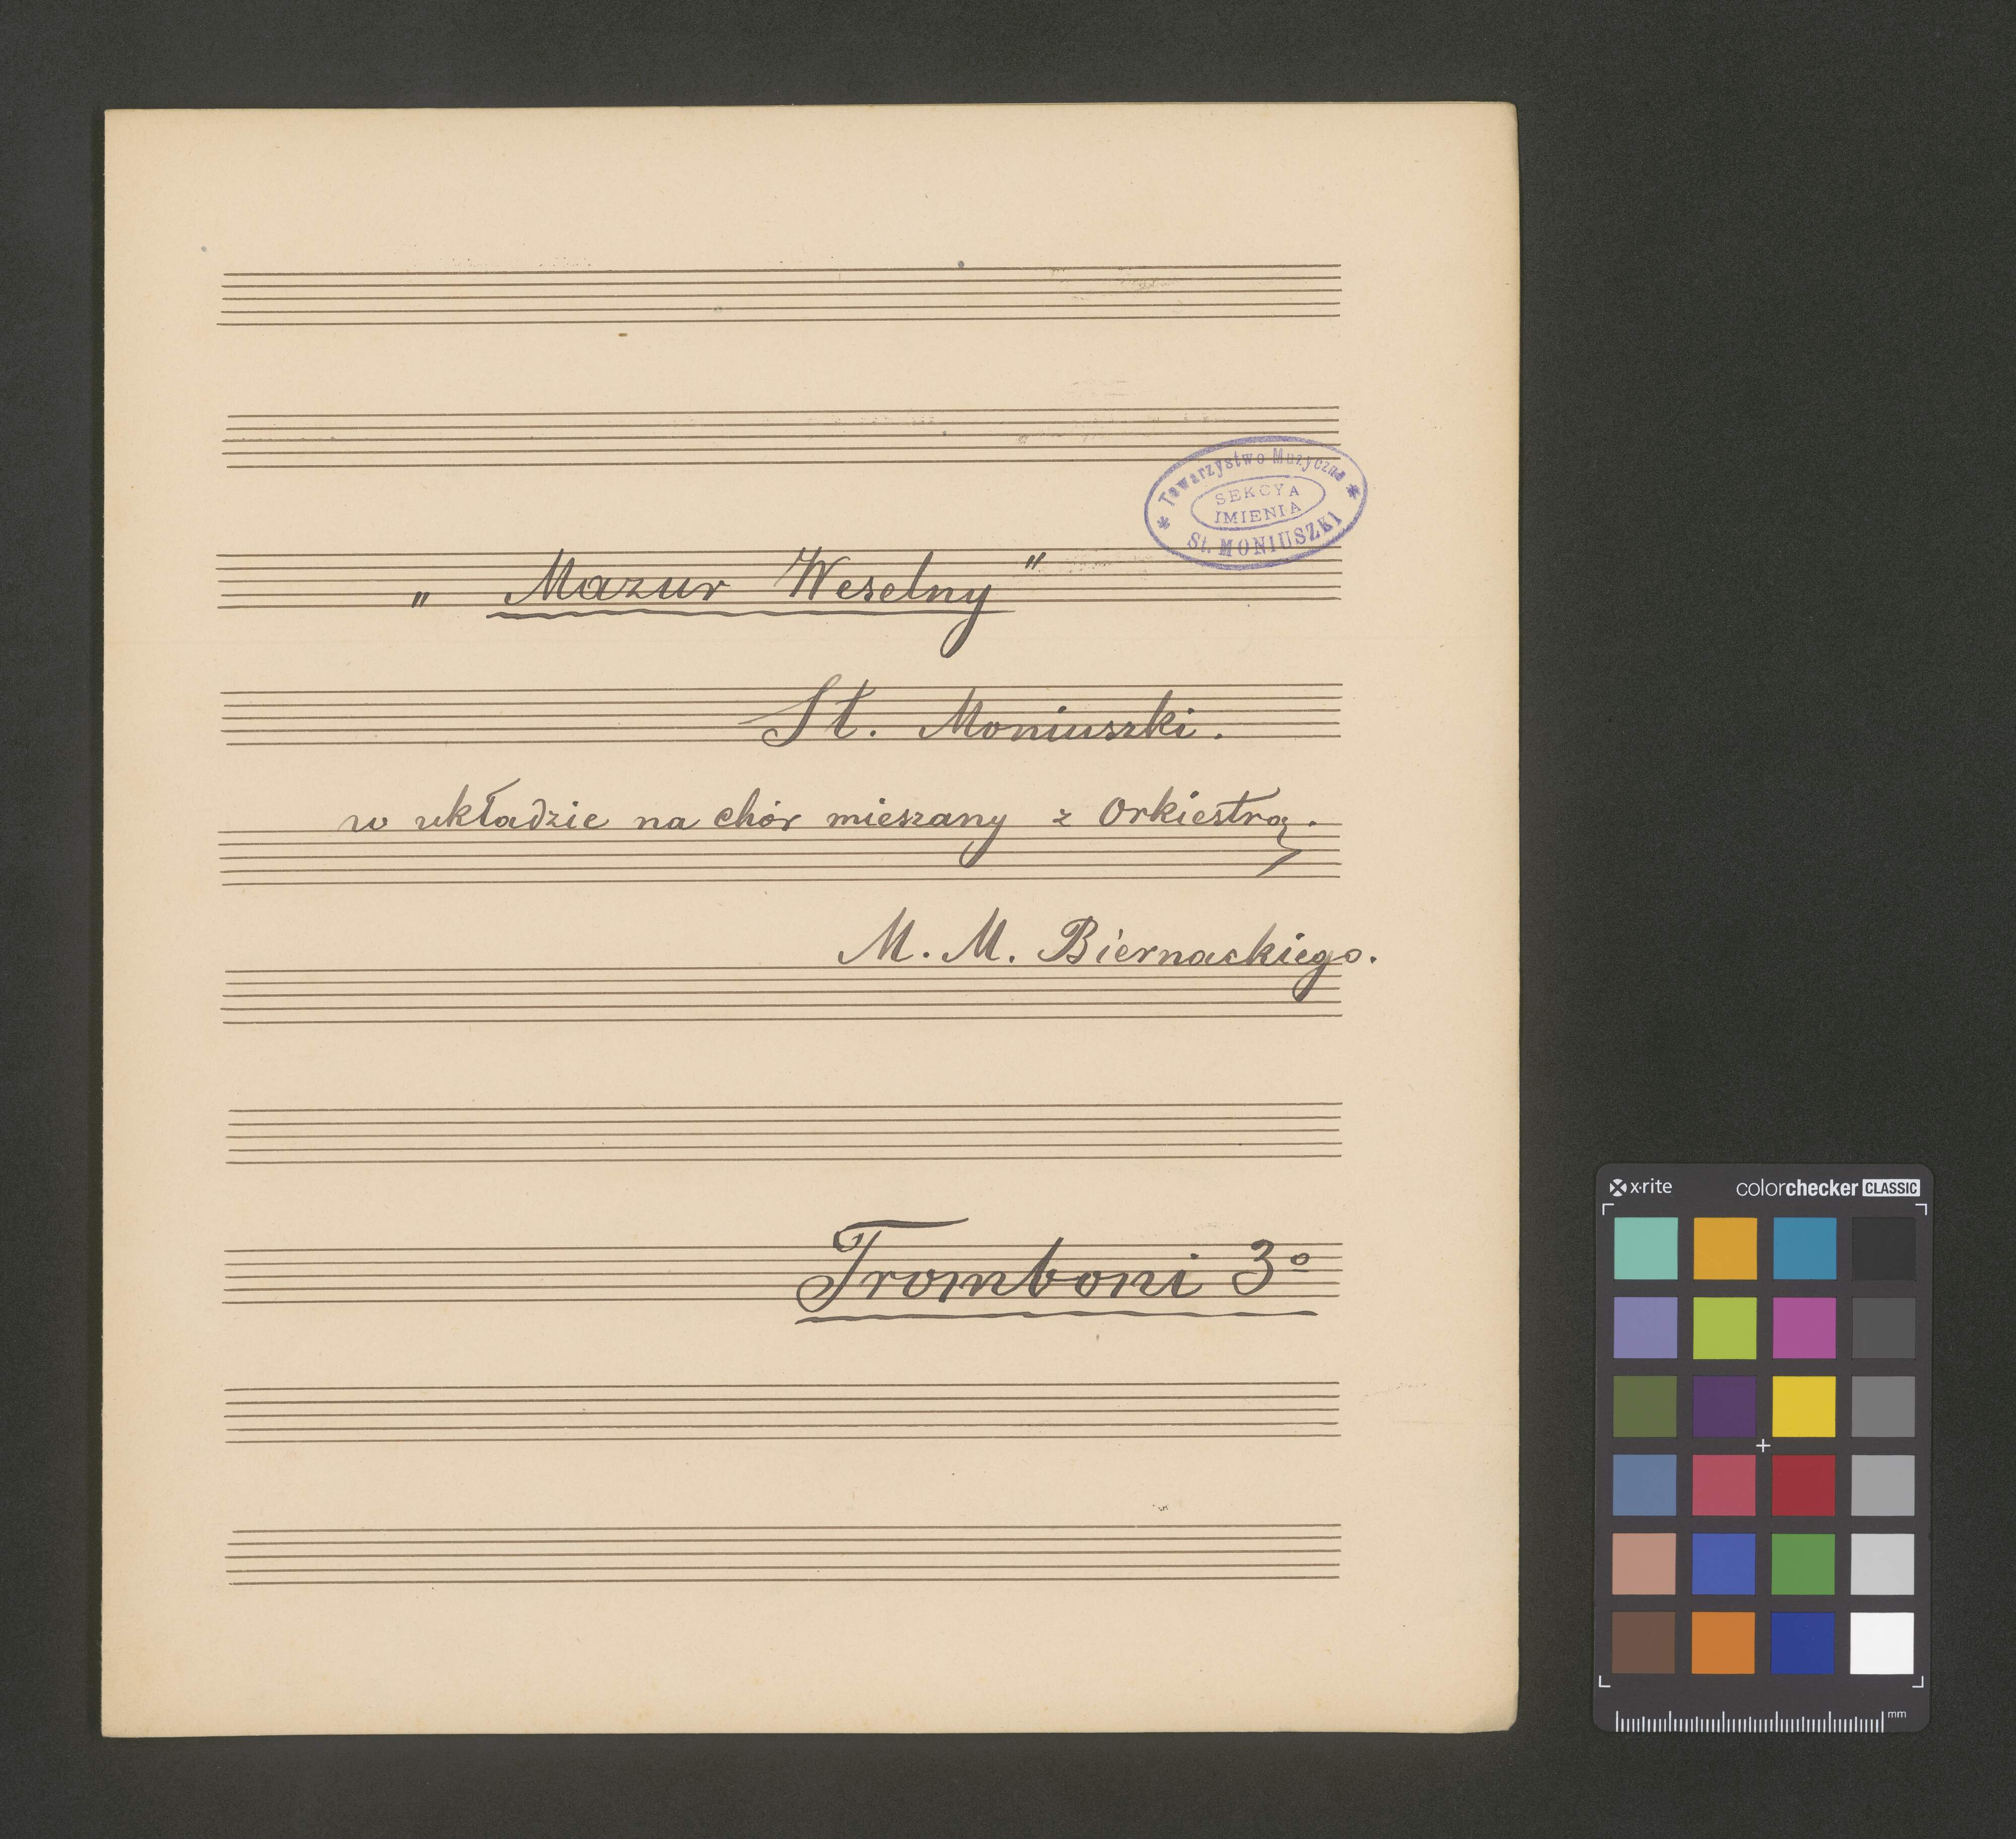 * Towarzystwo Muzyczne *
SEKCYA
IMIENIA
St. MONIUSZKI
„ Mazur Weselny "
St. Moniuszki.
w układzie na chór mieszany z Orkiestrą.
M. M. Biernackiego.
Tromboni 3º
x·rite colorchecker CLASSIC
mm